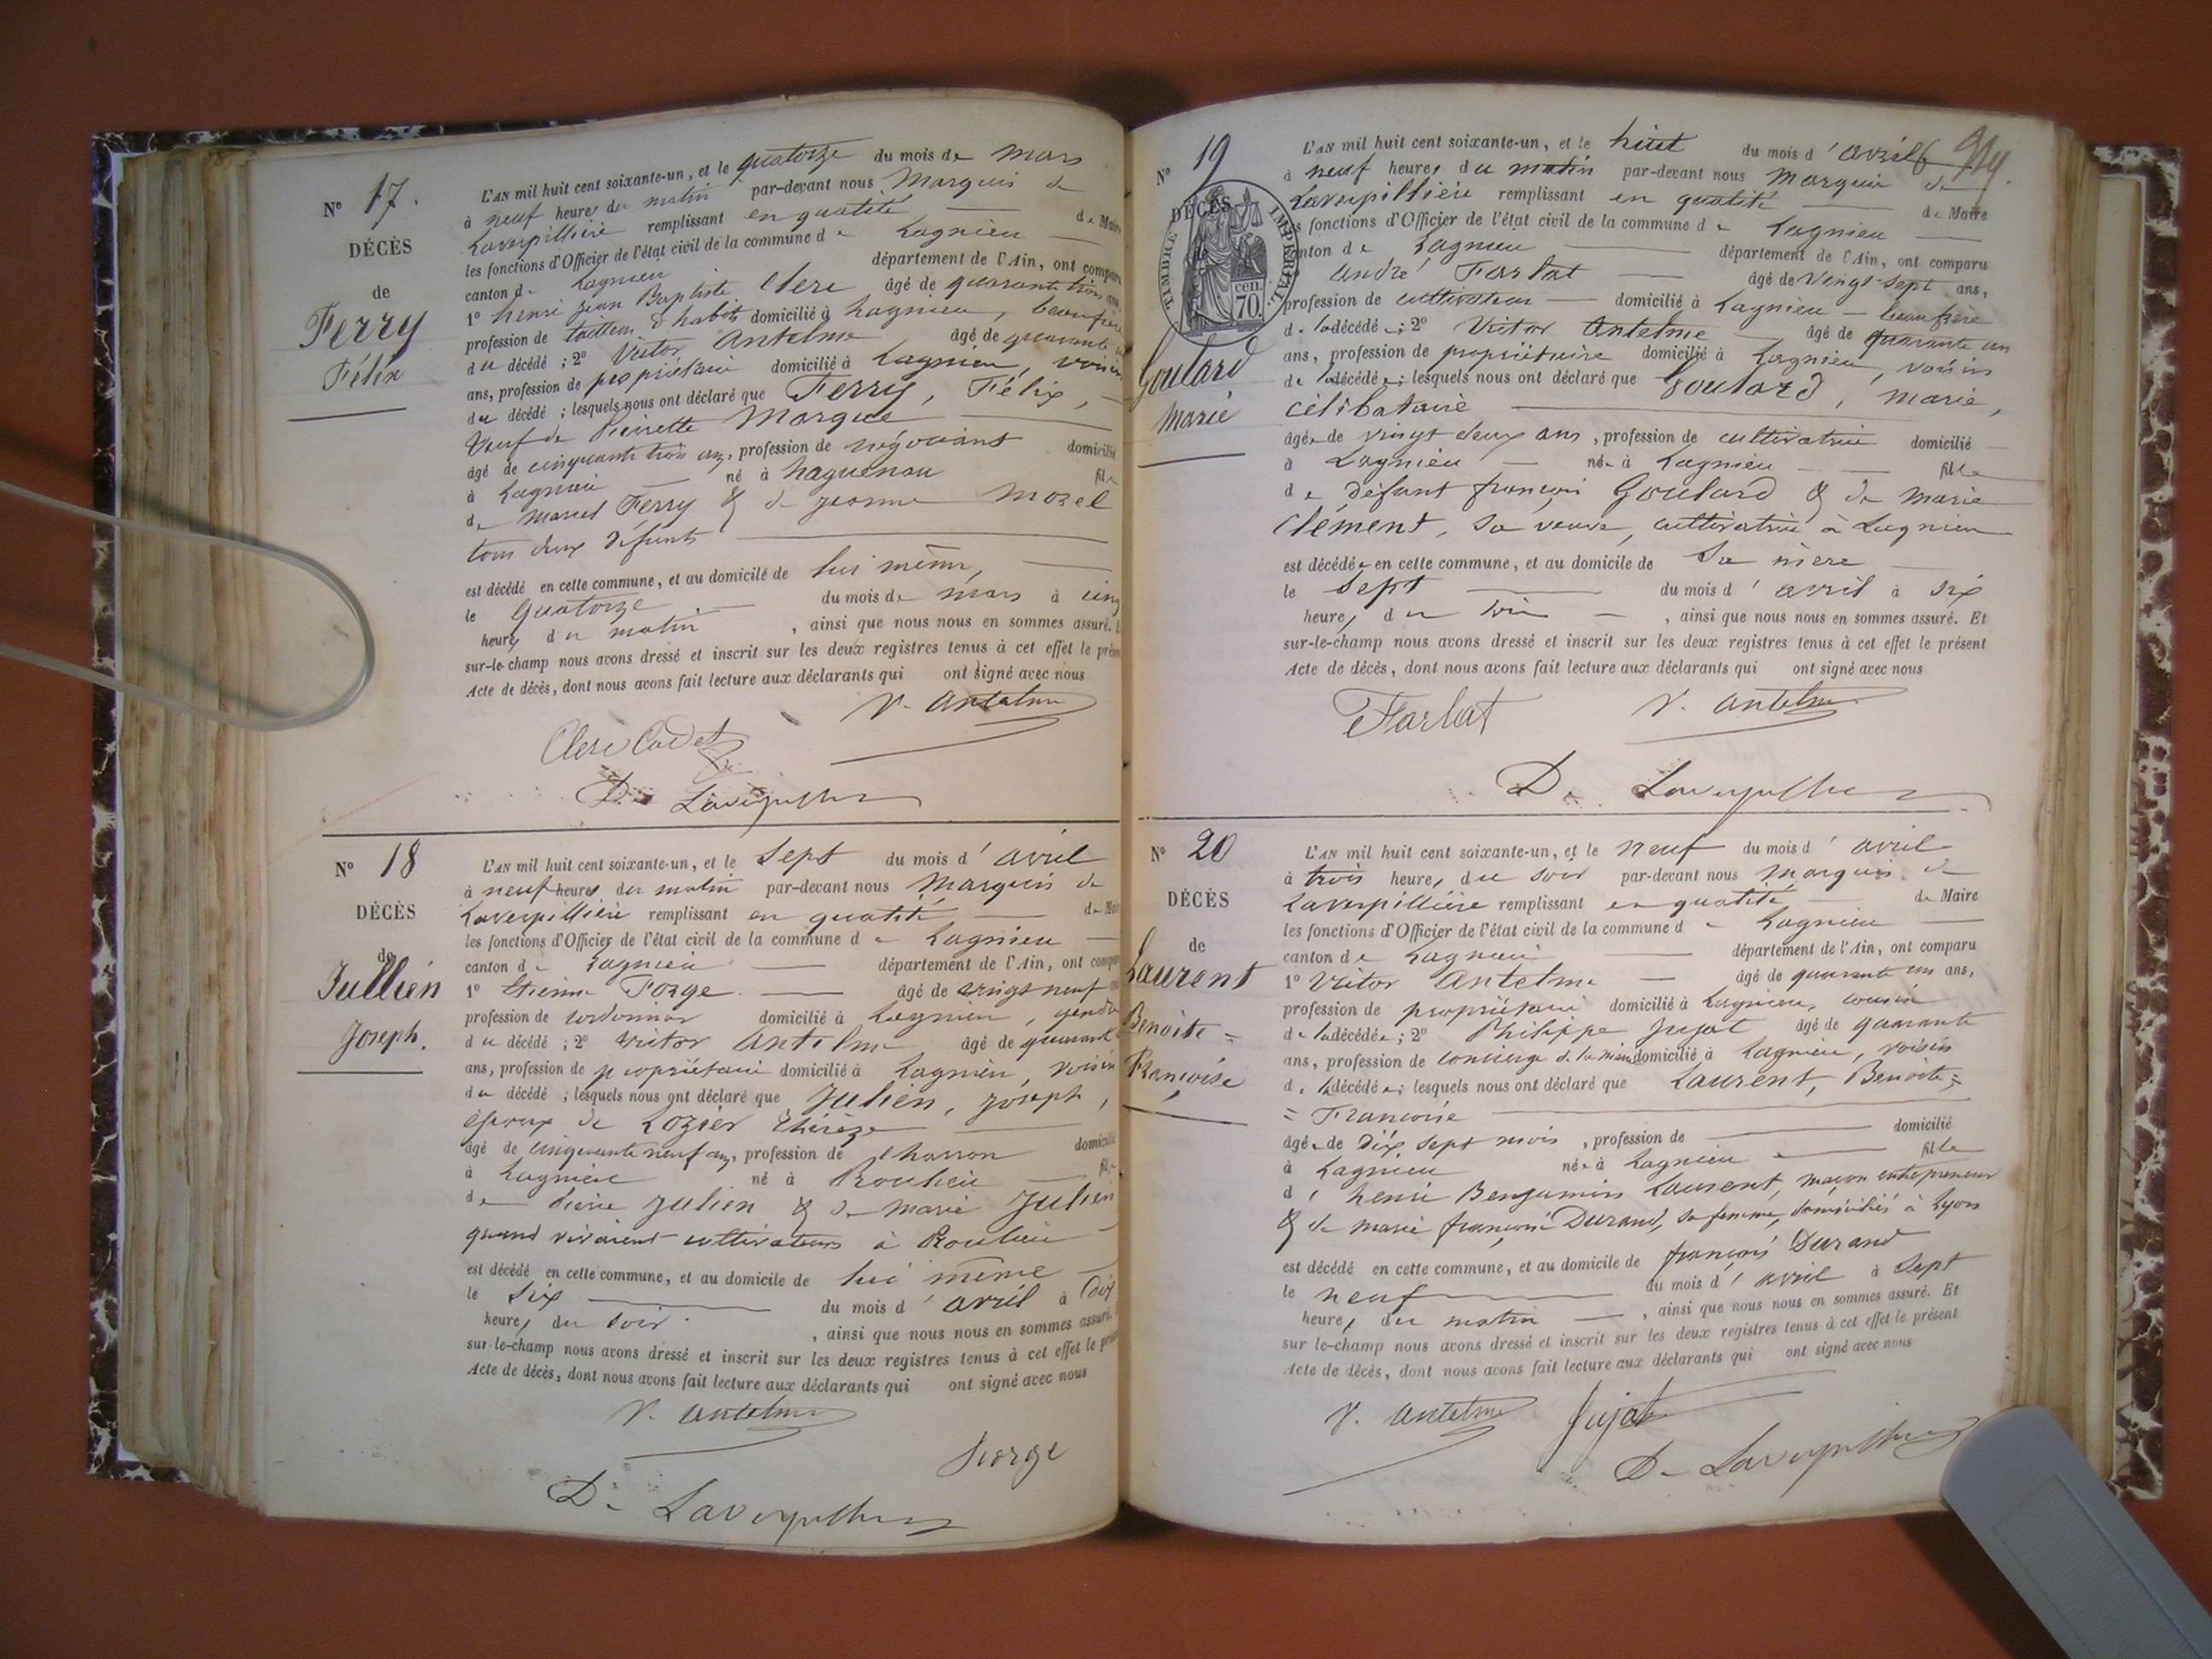 N° 17.
DÉCÈS
de
Ferry
Félix
L'AN mil huit cent soixante-un, et le quatorze du mois de mars
à neuf heures du matin par-devant nous Marquis de
Laverpillière remplissant en qualité de Maire
les fonctions d'Officier de l'état civil de la commune de Lagnieu
canton de Lagnieu département de l'Ain, ont comparu
1° henri Jean Baptiste Clere âgé de quarante trois ans
profession de tailleur d'habits domicilié à Lagnieu, beaufrère
du décédé ; 2° Victor Antelme âgé de quarante
ans, profession de propriétaire domicilié à Lagnieu, voisin
du décédé ; lesquels nous ont déclaré que Ferry, Félix,
Veuf de Pierrette Marque
âgé de cinquante trois ans, profession de négociant domicilié
à Lagnieu né à haguenau fils
de Marcel Ferry & de jeanne Morel
tous deux défunts
est décédé en cette commune, et au domicile de lui même,
le Quatorze du mois de mars à cinq
heures du matin , ainsi que nous nous en sommes assuré.
sur-le-champ nous avons dressé et inscrit sur les deux registres tenus à cet effet le présent
Acte de décès, dont nous avons fait lecture aux déclarants qui ont signé avec nous
V. Antelme
Clere Cadet
De Laverpillière
N° 18
DÉCÈS
de
Jullien
Joseph.
L'AN mil huit cent soixante-un, et le Sept du mois d'avril
à neuf heures du matin par-devant nous Marquis de
Laverpillière remplissant en qualité de Maire
les fonctions d'Officier de l'état civil de la commune de Lagnieu
canton de Lagnieu département de l'Ain, ont comparu
1° Etienne Forge âgé de vingt neuf
profession de cordonnier domicilié à Lagnieu, gendre
du décédé ; 2° Victor Antelme âgé de quarante
ans, profession de propriétaire domicilié à Lagnieu, voisin
du décédé ; lesquels nous ont déclaré que Julien, joseph,
époux de Lozier thérèze
âgé de cinquante neuf ans, profession de charron domicilié
à Lagnieu né à Proulieu fils
de Pierre Julien & de Marie Julien
quand vivaient cultivateurs à Proulieu
est décédé en cette commune, et au domicile de lui même
le Six du mois d'avril à dix
heures du soir. , ainsi que nous nous en sommes assuré.
sur-le-champ nous avons dressé et inscrit sur les deux registres tenus à cet effet le présent
Acte de décès, dont nous avons fait lecture aux déclarants qui ont signé avec nous
V. Antelme
Forge
De Laverpillière
N° 19
DÉCÈS
TIMBRE IMPÉRIAL
70 cen.
Goulard
Marie
L'AN mil huit cent soixante-un, et le huit du mois d'avril
à neuf heures du matin par-devant nous Marquis de
Laverpillière remplissant en qualité de Maire
les fonctions d'Officier de l'état civil de la commune de Lagnieu
canton de Lagnieu département de l'Ain, ont comparu
André Farlat âgé de vingt-sept ans,
profession de cultivateur domicilié à Lagnieu beaufrère
de la décédée ; 2° Victor Antelme âgé de quarante un
ans, profession de propriétaire domicilié à Lagnieu, voisin
de la décédée ; lesquels nous ont déclaré que Goulard, Marie,
célibataire
âgée de vingt deux ans, profession de cultivatrice domicilié
à Lagnieu née à Lagnieu fille
de défunt françois Goulard & de Marie
Clément, sa veuve, cultivatrice à Lagnieu
est décédée en cette commune, et au domicile de Sa mère
le Sept du mois d'avril à six
heures du soir , ainsi que nous nous en sommes assuré. Et
sur-le-champ nous avons dressé et inscrit sur les deux registres tenus à cet effet le présent
Acte de décès, dont nous avons fait lecture aux déclarants qui ont signé avec nous
Farlat V. Antelme
De Laverpillière
N° 20
DÉCÈS
de
Laurent
Benoite =
Françoise
L'AN mil huit cent soixante-un, et le neuf du mois d'avril
à trois heures du soir par-devant nous Marquis de
Laverpillière remplissant en qualité de Maire
les fonctions d'Officier de l'état civil de la commune de Lagnieu
canton de Lagnieu département de l'Ain, ont comparu
1° Victor Antelme âgé de quarante un ans,
profession de propriétaire domicilié à Lagnieu, cousin
de la décédée ; 2° Philippe Jujat âgé de quarante
ans, profession de concierge de la mairie domicilié à Lagnieu, voisin
de la décédée ; lesquels nous ont déclaré que Laurent, Benoite =
= Françoise
âgée de Dix sept mois , profession de domicilié
à Lagnieu née à Lagnieu fille
d'henri Benjamin Laurent, maçon entrepreneur
& de marie françoise Durand, sa femme, domiciliés à Lyon
est décédé en cette commune, et au domicile de françois Durand
le neuf du mois d'avril à Sept
heures du matin , ainsi que nous nous en sommes assuré. Et
sur-le-champ nous avons dressé et inscrit sur les deux registres tenus à cet effet le présent
Acte de décès, dont nous avons fait lecture aux déclarants qui ont signé avec nous
V. Antelme Jujat
De Laverpillière